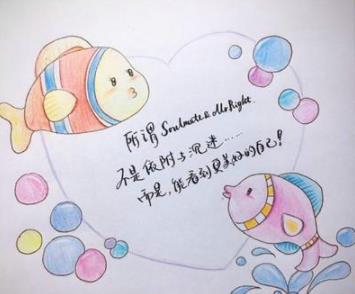 所谓 Soulmate & Mr Right.
不是依附与沉迷......
而是，能看到更美好的自己！